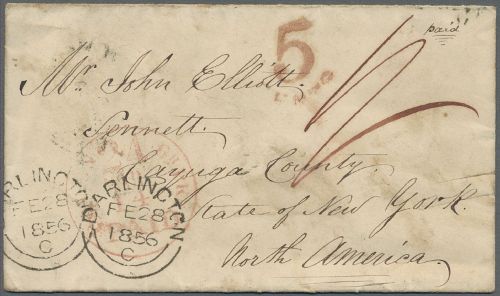 paid
5
Mr. John Elliott.
Sennett.
Cayuga County.
State of New York.
North America.
DARLINGTON
FE 28
1856
C
DARLINGTON
FE 28
1856
C